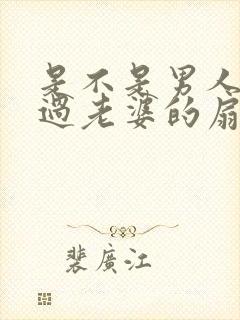 是不是男人
过老婆的扇
裴廣江